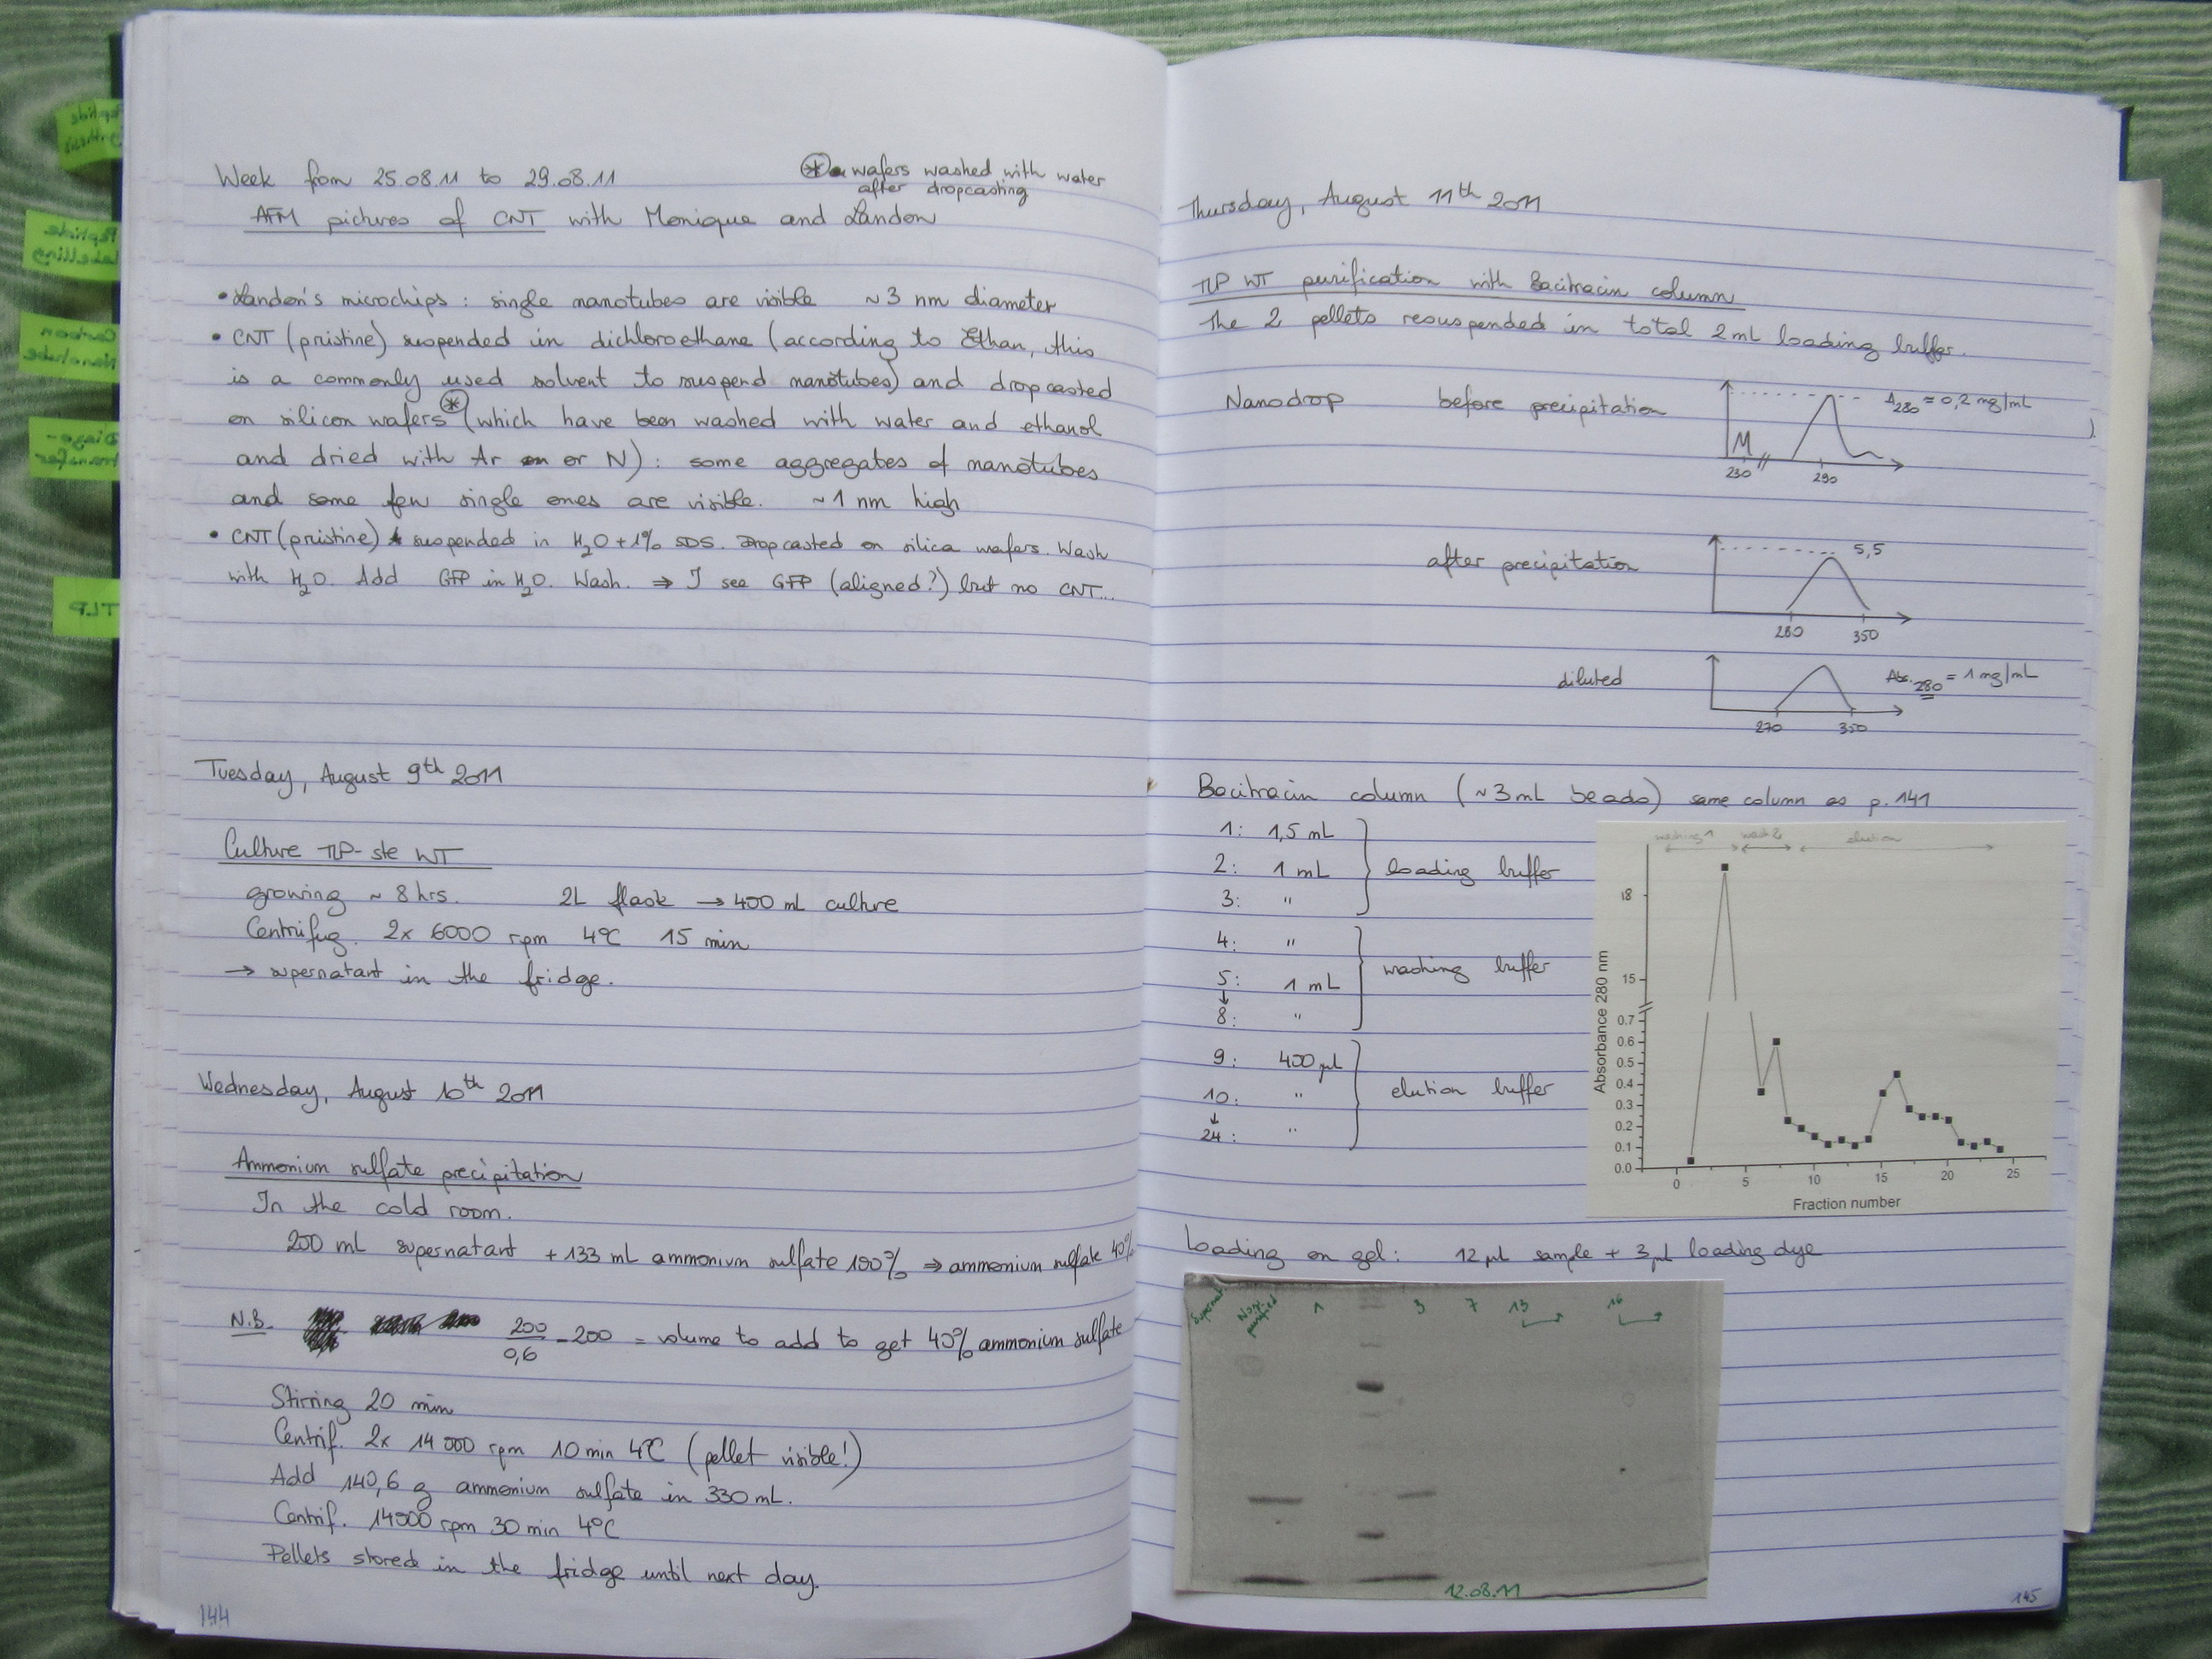 Week from 25.08.11 to 29.08.11
* wafers washed with water
after dropcasting
AFM pictures of CNT with Monique and Landon
• Landon's microchips : single nanotubes are visible ~3 nm diameter
• CNT (pristine) suspended in dichloroethane (according to Ethan, this
is a commonly used solvent to suspend nanotubes) and dropcasted
on silicon wafers * (which have been washed with water and ethanol
and dried with Ar or N) : some aggregates of nanotubes
and some few single ones are visible. ~1 nm high
• CNT (pristine) suspended in H2O + 1% SDS. Dropcasted on silica wafers. Wash
with H2O. Add GFP in H2O. Wash. ⇒ I see GFP (aligned?) but no CNT...
Tuesday, August 9th 2011
Culture TLP-ste WT
growing ~ 8 hrs. 2L flask → 400 mL culture
Centrifug. 2x 6000 rpm 4°C 15 min
→ supernatant in the fridge.
Wednesday, August 10th 2011
Ammonium sulfate precipitation
In the cold room.
200 mL supernatant + 133 mL ammonium sulfate 100% ⇒ ammonium sulfate 40%
N.B. 200/0,6 - 200 = volume to add to get 40% ammonium sulfate
Stirring 20 min
Centrif. 2x 14 000 rpm 10 min 4°C (pellet visible!)
Add 140,6 g ammonium sulfate in 330 mL.
Centrif. 14000 rpm 30 min 4°C
Pellets stored in the fridge until next day.
144
Peptide
Synthesis
Peptide
Labelling
Carbon
Nanotube
Diazo-
transfer
TLP
Thursday, August 11th 2011
TLP WT purification with Bacitracin column
The 2 pellets resuspended in total 2 mL loading buffer.
Nanodrop before precipitation
A280 = 0,2 mg/mL
230 // 290
after precipitation
5,5
280 350
diluted
Abs.280 = 1 mg/mL
270 350
Bacitracin column (~3 mL beads) same column as p. 141
1: 1,5 mL
2: 1 mL loading buffer
3: "
4: "
5: 1 mL washing buffer
↓
8: "
9: 400 µL
10: " elution buffer
↓
24: "
washing 1 wash 2 elution
18
15
0.7
0.6
0.5
0.4
0.3
0.2
0.1
0.0
0 5 10 15 20 25
Absorbance 280 nm
Fraction number
Loading on gel: 12 µL sample + 3 µL loading dye
Supernat. Non-purified 1 3 7 13 16
12.08.11
145